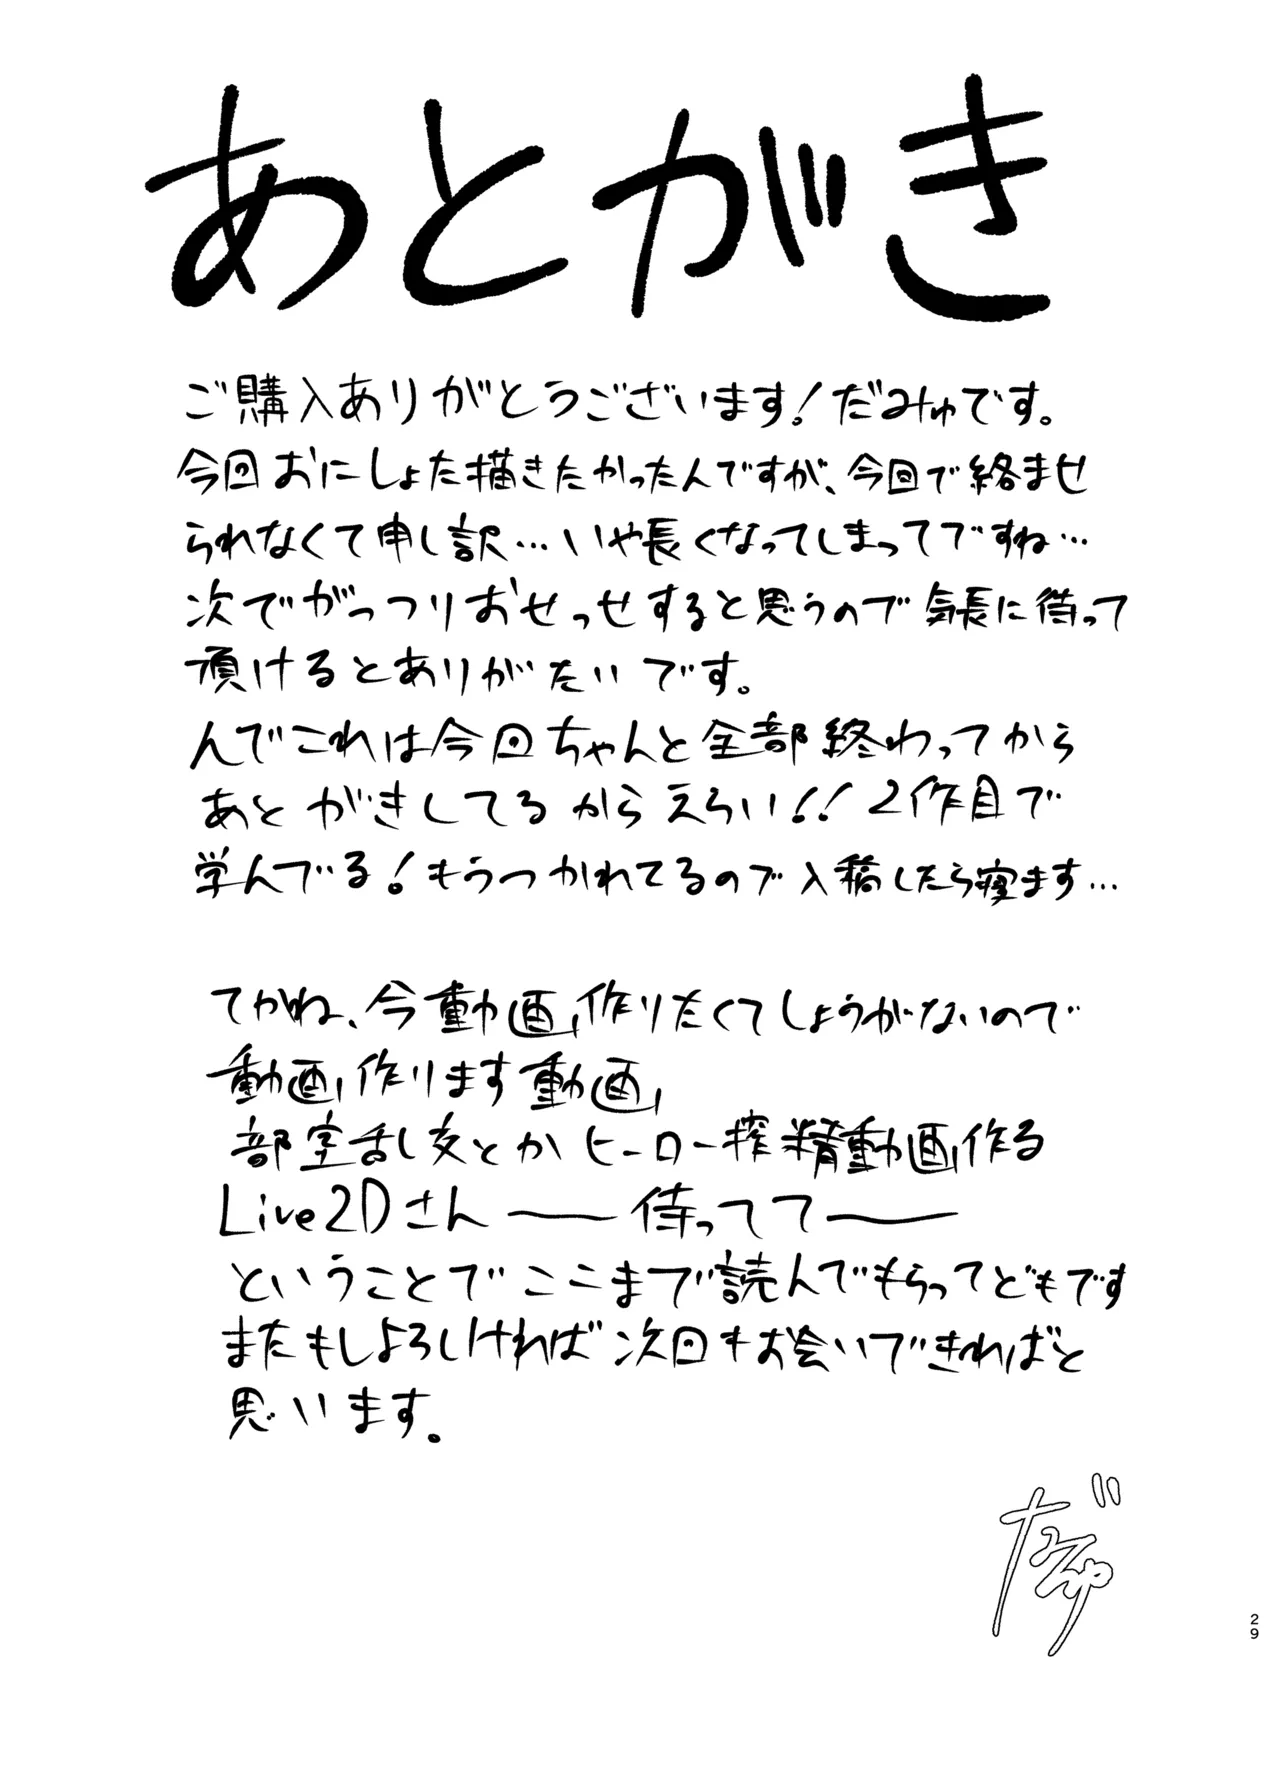 あとがき
ご購入ありがとうございます！だみゅです。
今回おにしょた描きたかったんですが、今回で絡ませ
られなくて申し訳…いや長くなってしまってですね…
次でがっつりおせっせすると思うので気長に待って
頂けるとありがたいです。
んでこれは今回ちゃんと全部終わってから
あとがきしてるからえらい！！2作目で
学んでる！もうつかれてるので入稿したら寝ます…
てかね、今動画作りたくてしょうがないので
動画作ります動画
部室乱し交とかヒーロー搾精動画作る
Live2Dさん――待ってて――
ということでここまで読んでもらってどもです
またもしよろしければ次回もお会いできればと
思います。
だみゅ
29